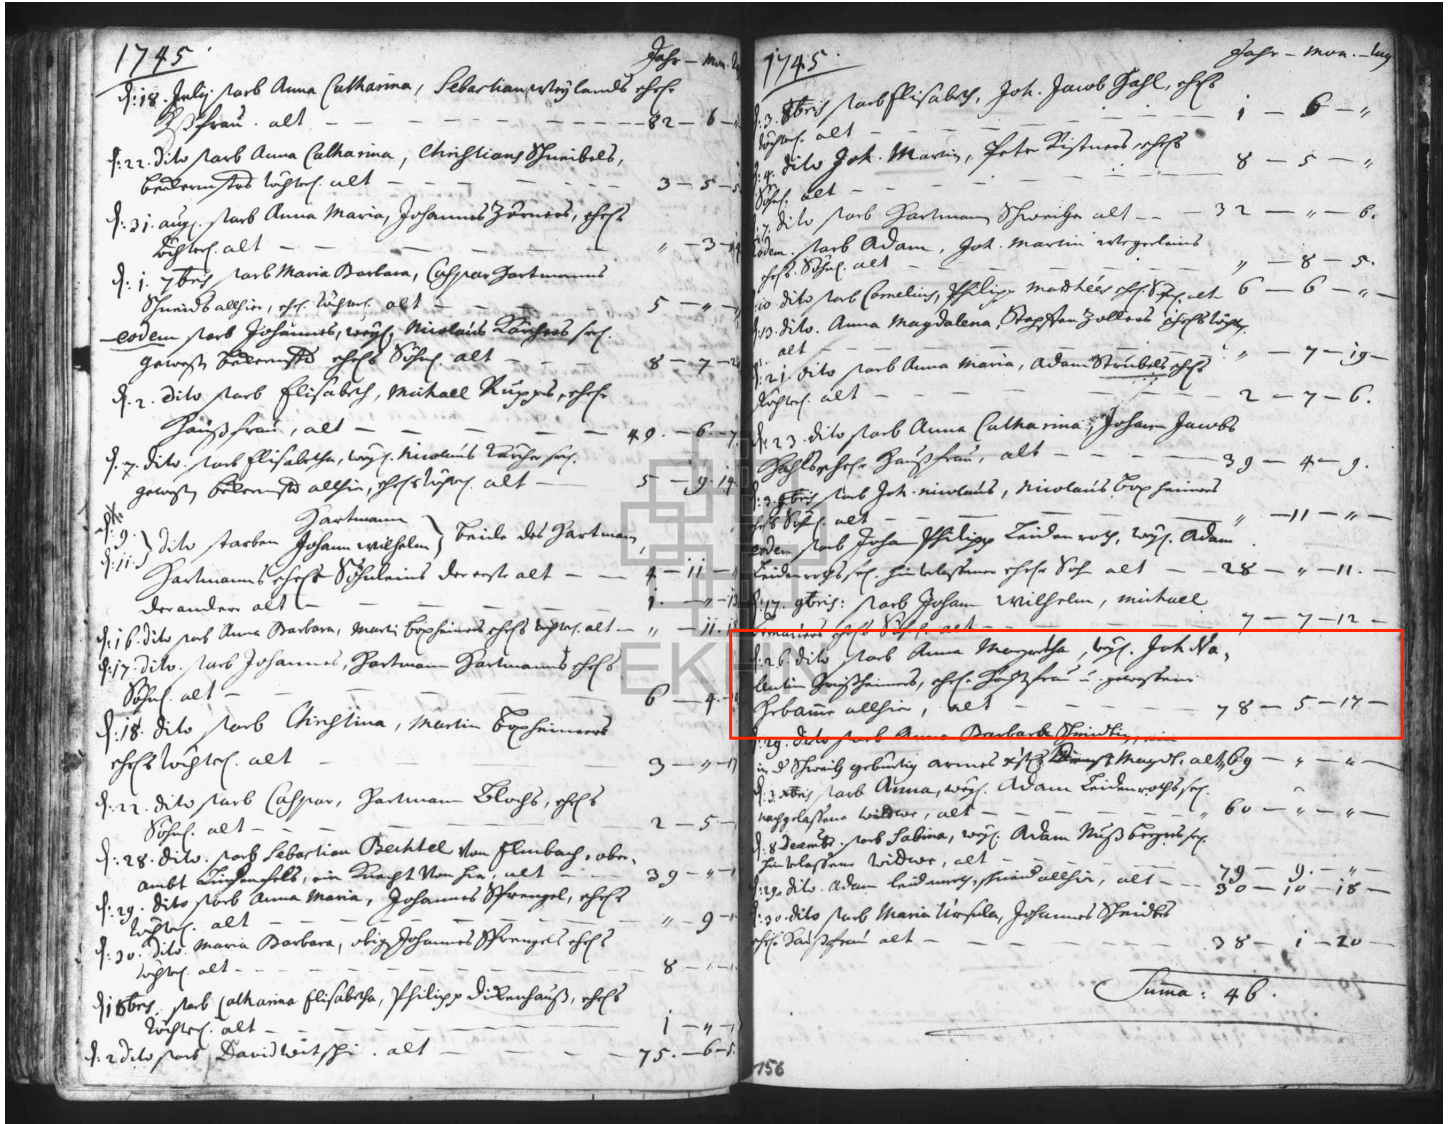 1745
Jahr — Mon.
d: 18. July. starb Anna Catharina, Sebastian Weylands ehel.
Haußfrau. alt 82 — 6 — „
d: 22. dito starb Anna Catharina, Christians
töchterl. alt 3 — 5 —
d: 31. aug. starb Anna Maria, Johannes Körners, ehel.
töchterl. alt „ — 3 —
d: 1. 7bris starb Maria Barbara, Caspar Hartmanns
allhier, ehel. töchterl. alt 5 — „ —
eodem starb Johannes, weyl. Nicolaus Kärchers sel.
gewesen ehel. Söhnl. alt 8 — 7 —
d. 2. dito starb Elisabeth, Michael Rupps, ehel.
Haußfrau, alt 49. — 6. — 7.
d. 7. dito. starb Elisabetha, weyl. Nicolaus sel.
gewesen allhier, ehel. töchterl. alt 5 — 9. 14
d. 9. Hartmann
d: 11. dito starben Johann Wilhelm beide des Hartmann
Hartmanns ehel. Söhnleins der erste alt 4 — 11 —
der andere alt 1. — „ —
d: 16. dito starb Anna Barbara, Martin Boxheimers ehel. töchterl. alt „ — 11.
d: 17. dito. starb Johannes, Hartmann Hartmanns ehel.
Söhnl. alt 6 — 4. —
d: 18. dito starb Christina, Martin Boxheimers
ehel. töchterl. alt 3 — „ —
d. 22. dito starb Caspar, Hartmann Blochs, ehel.
Söhnl. alt 2 — 5 —
d: 28. dito. starb Sebastian Bechtel von
ambt ein Knecht von hier, alt 39 — „ —
d: 29. dito starb Anna Maria, Johannes Sprengel, ehel.
töchterl. alt „ — 9 —
d: 30. dito. Maria Barbara, obig. Johannes Sprengels ehel.
töchterl. alt 8 — „ —
d 1 8bris. starb Catharina Elisabetha, Philipp Dickenhauß, ehel.
töchterl. alt 1 — „ —
d: 2 dito starb David alt 75. — 6 — 5.
1745.
Jahr — Mon. — tag
d: 3. 8bris starb Elisabeth, Joh. Jacob Kahl, ehel.
töchterl. alt 1 — 6 — „
d: 4. dito Joh. Martin, Peter Kistners ehel.
Söhnl. alt 8 — 5 — „
d. 7. dito starb Hartmann alt 32 — „ — 6.
eodem. starb Adam, Joh. Martin Wegerleins
ehel. Söhnl. alt „ — 8 — 5.
d: 10. dito starb Cornelius, Philipp Mathées ehel. Söhnl. alt 6 — 6 — „
d: 13. dito. Anna Magdalena, Steffan Zollers ehel. töchterl.
alt „ — 7 — 19 —
d: 21. dito starb Anna Maria, Adam Strubels ehel.
töchterl. alt 2 — 7 — 6.
d: 23. dito starb Anna Catharina, Johann Jacobs
Kahls ehel. Haußfrau, alt 39 — 4 — 9.
d: 3. 9bris starb Joh. Nicolaus, Nicolaus Boxheimers
ehel. Söhnl. alt „ — 11 — „ —
eodem starb Johan Philipp Leidenroth, weyl. Adam
Leidenroths sel. hinterlassener ehel. Sohn alt 28 — „ — 11. —
d: 17. 9bris: starb Johann Wilhelm, Michael
ehel. Söhnl. alt 7 — 7 — 12 —
d: 26. dito starb Anna Margretha, weyl. Joh. Va„
lentin Grießheimers, ehel. Haußfrau u. gewesene
Hebamme allhier, alt 78 — 5 — 17 —
d: 29. dito starb Anna Barbara ein
in d Schweitz gebürtig armes Magdl. alt 69 — „ — „ —
d: 3. xbris starb Anna, weyl. Adam Leidenroths sel.
nachgelassene Widwe, alt 60 — „ — „ —
d: 8 Decembr. starb Sabina, weyl. Adam sel.
hinterlassene Widwe, alt 79 — 9. — „ —
d: 29. dito. Adam Leidenroth, allhier, alt 30 — 10 — 18 —
d: 30. dito starb Maria Ursula, Johannes
ehel. Haußfrau alt 38 — 1 — 20 —
Suma: 46.
156
EKHN